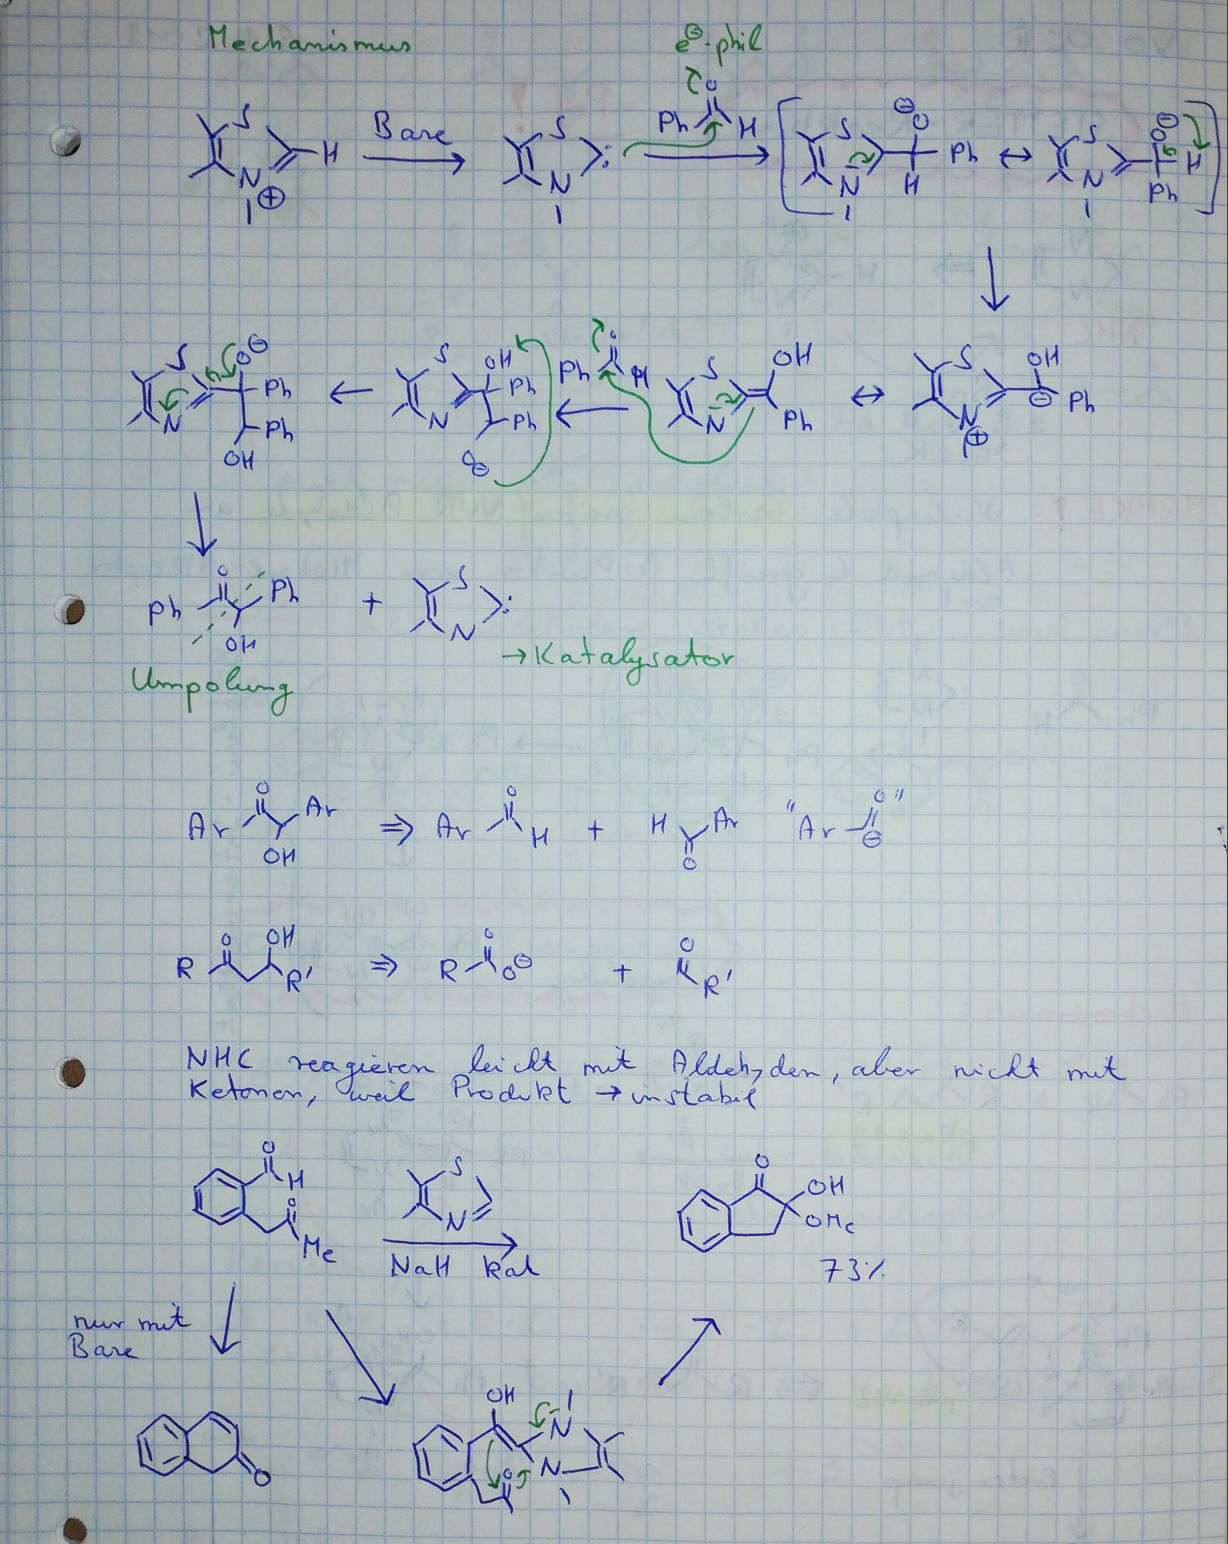 Mechanismus
e⊖-phil
S H N ⊕
Base
S N :
O Ph H
S N ⊖ O Ph H
↔
S N O ⊖ H Ph
S N O ⊖ Ph Ph OH
S N OH Ph Ph O⊖
O Ph H
S N OH Ph
↔
S N ⊕ OH ⊖ Ph
Ph O Ph OH
+
S N :
→ Katalysator
Umpolung
Ar O Ar OH ⇒ Ar O H + H O Ar "Ar O ⊖"
R O OH R' ⇒ R O O⊖ + O R'
NHC reagieren leicht mit Aldehyden, aber nicht mit
Ketonen, weil Produkt → instabil
O H O Me
S N
NaH kat
O OH OMe
73%
nur mit
Base
O
OH N N O